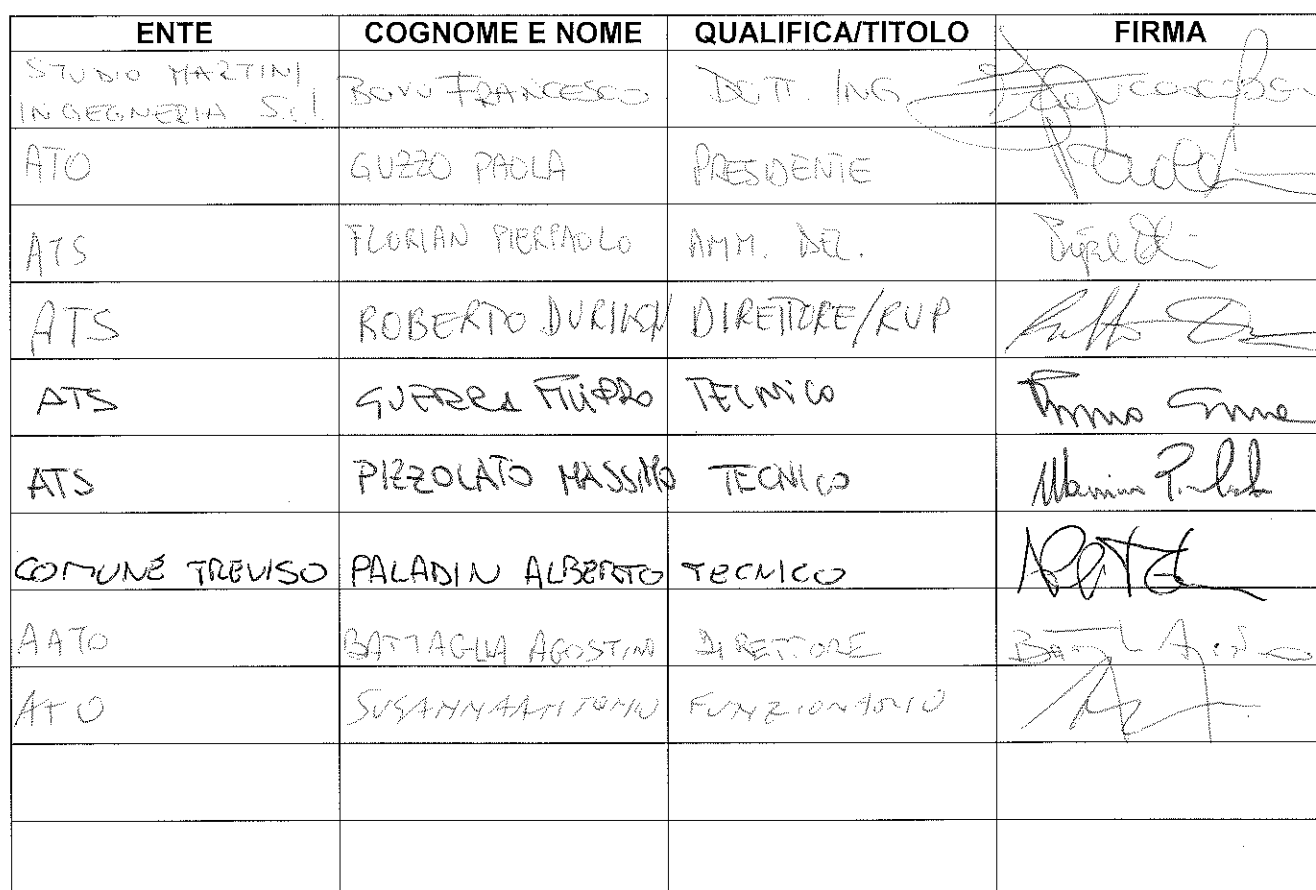 ENTE COGNOME E NOME QUALIFICA/TITOLO FIRMA
STUDIO MARTINI
INGEGNERIA S.r.l. BOVO FRANCESCO DOTT. ING.
ATO GUZZO PAOLA PRESIDENTE
ATS FLORIAN PIERPAOLO AMM. DEL.
ATS ROBERTO DURIGON DIRETTORE/RUP
ATS GUERRA FILIPPO TECNICO
ATS PIZZOLATO MASSIMO TECNICO
COMUNE TREVISO PALADIN ALBERTO TECNICO
AATO BATTAGLIA AGOSTINO DIRETTORE
ATO SUSANNA ANTONIO FUNZIONARIO